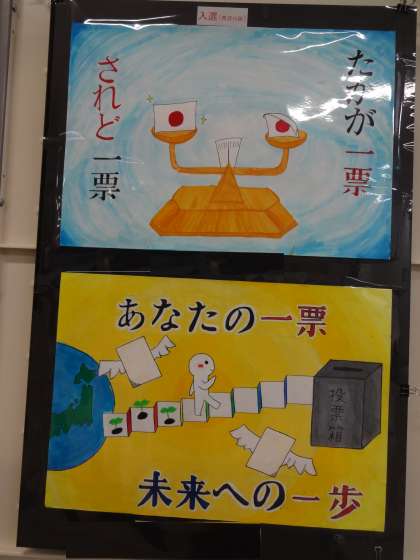 入選
たかが一票
されど一票
あなたの一票
投票箱
未来への一歩